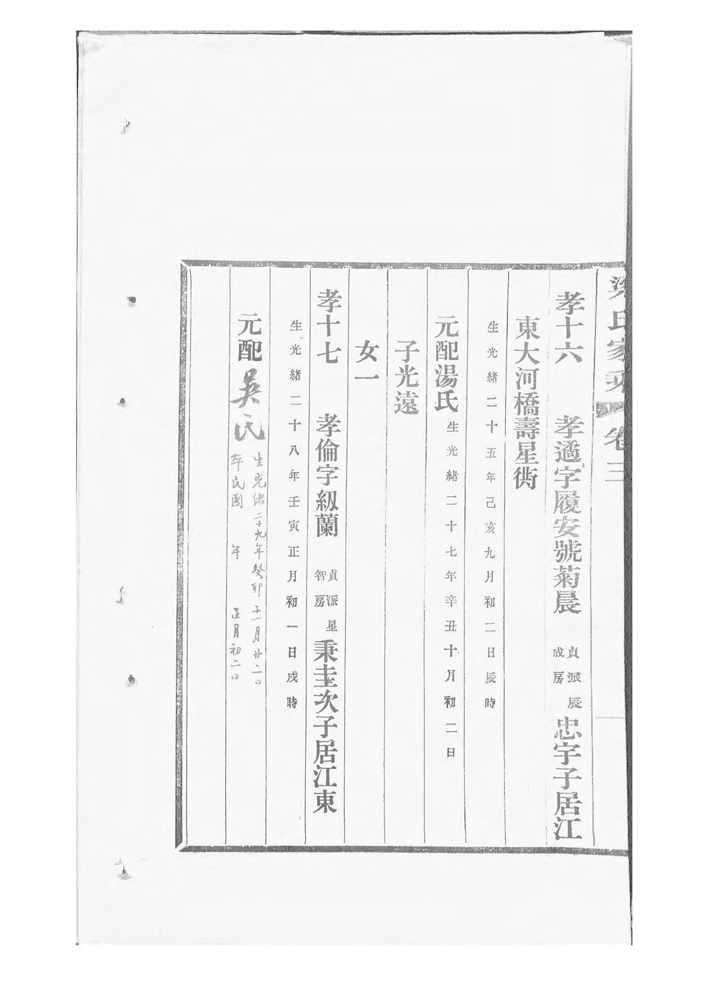 氏家乘 卷三
孝十六 孝遹字履安號菊晨 貞派辰成房 忠宇子居江
東大河橋壽星衖
生光緒二十五年己亥九月初二日辰時
元配湯氏 生光緒二十七年辛丑十月初二日
子光遠
女一
孝十七 孝倫字級蘭 貞派星智房 秉圭次子居江東
生光緒二十八年壬寅正月初一日戌時
元配吳氏 生光緒二十九年癸卯十一月廿二日
卒民國 年 正月初二日